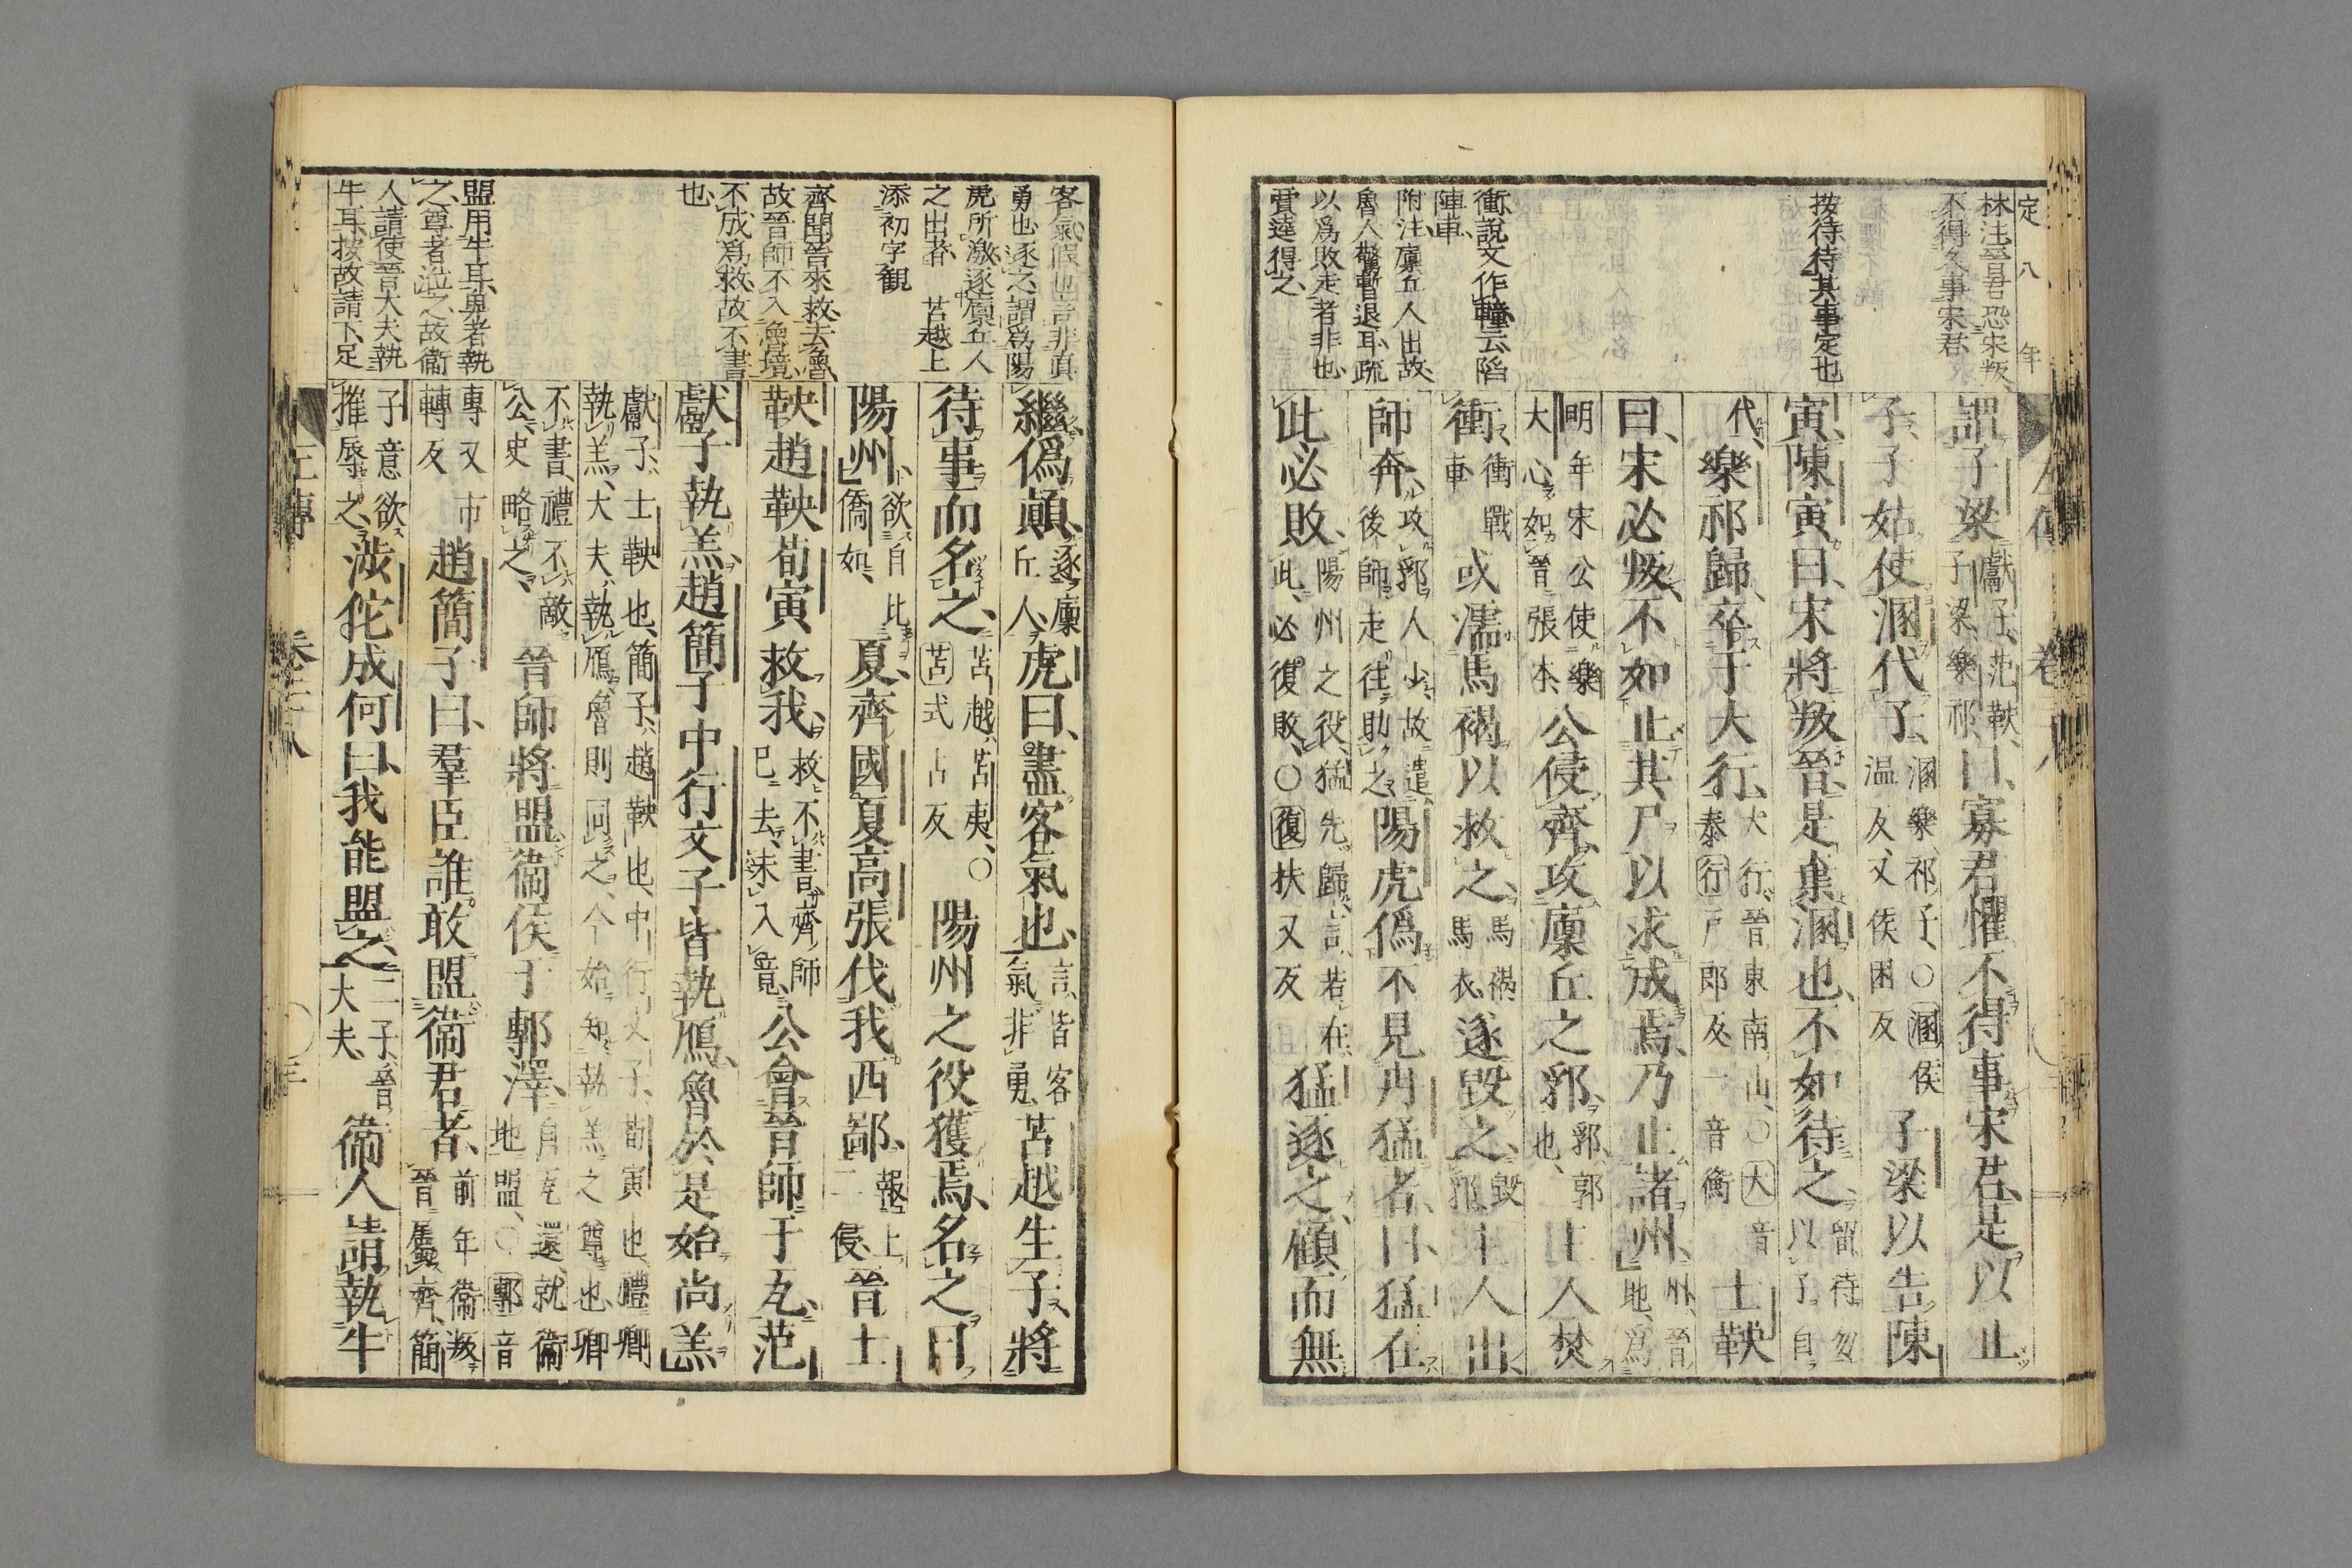 定八年
林注晉君恐宋叛
不得久事宋君
按待待其事定也
衝說文作䡴云陷
陣車
附注廩丘人出故
魯人驚暫退耳疏
以爲敗走者非也
賈逵得之
謂子梁獻子范鞅子梁樂祁曰寡君懼不得事宋君是以止
子子姑使溷代子溷樂祁子○溷侯温反又侯困反子梁以告陳
寅陳寅曰宋將叛晉是棄溷也不如待之留待勿以子自
代樂祁歸卒于大行大行晉東南山○大音泰行戸郎反一音衡士鞅
曰宋必叛不如止其尸以求成焉乃止諸州州晉地爲
明年宋公使樂大心如晉張本公侵齊攻廩丘之郛郛郭也主人焚
衝衝戰車或濡馬褐以救之馬褐馬衣遂毀之毀郛主人出
師奔攻郛人少故遣後師走往助之陽虎偽不見冉猛者曰猛在
此必敗陽州之役猛先歸言若在此必復敗○復扶又反猛逐之顧而無
客氣假也言非真
勇也逐之謂爲陽
虎所激逐廩丘人
之出者 苫越上
添初字観
齊聞晉來救去魯
故晉師不入魯境
不成爲救故不書
也
盟用牛耳卑者執
之尊者涖之故衞
人請使晉大夫執
牛耳按故請下足
繼偽顛逐廩丘人虎曰盡客氣也言皆客氣非勇苫越生子將
待事而名之苫越苫夷○苫式占反陽州之役獲焉名之曰
陽州欲自比僑如夏齊國夏高張伐我西鄙報上二侵晉士
鞅趙鞅荀寅救我救不書齊師已去未入竟公會晉師于瓦范
獻子執羔趙簡子中行文子皆執鴈魯於是始尚羔
獻子士鞅也簡子趙鞅也中行文子荀寅也禮卿執羔大夫執鴈魯則同之今始知執羔之尊也卿
不書禮不敵公史略之晉師將盟衞侯于鄟澤自瓦還就衞地盟○鄟音
專又市轉反趙簡子曰羣臣誰敢盟衞君者前年衞叛晉屬齊簡
子意欲摧辱之涉佗成何曰我能盟之二子晉大夫衞人請執牛